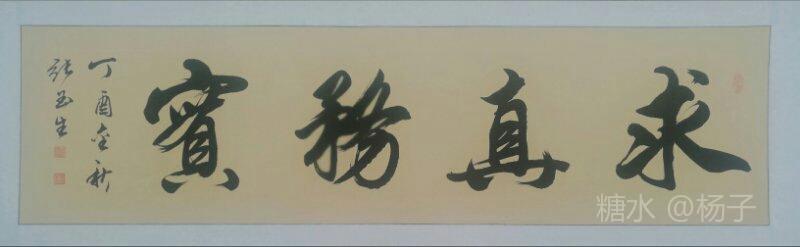 求真務實
丁酉金秋
張玉生
糖水 @杨子